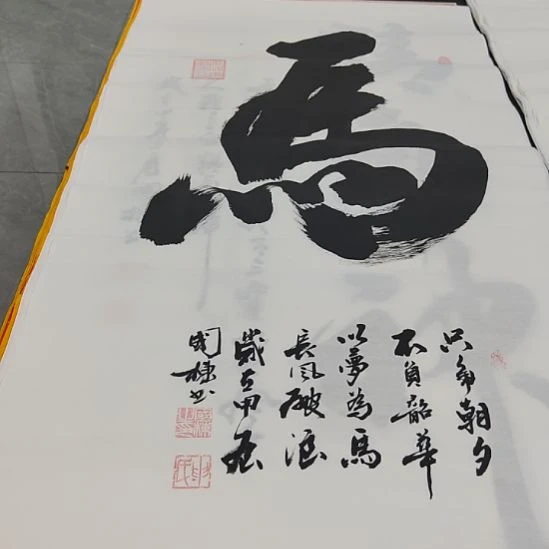 馬
只争朝夕
不負韶華
以夢為馬
長風破浪
歲在甲辰
國棟书